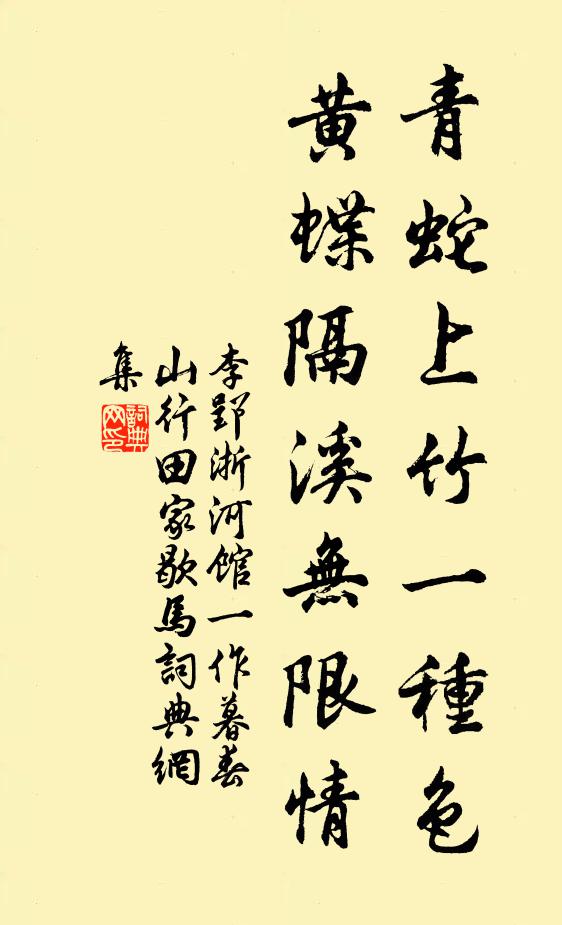 青蛇上竹一種色
黃蝶隔溪無限情
李郢浙河館一作暮春
山行田家歇馬詞典網
集
詞典網印